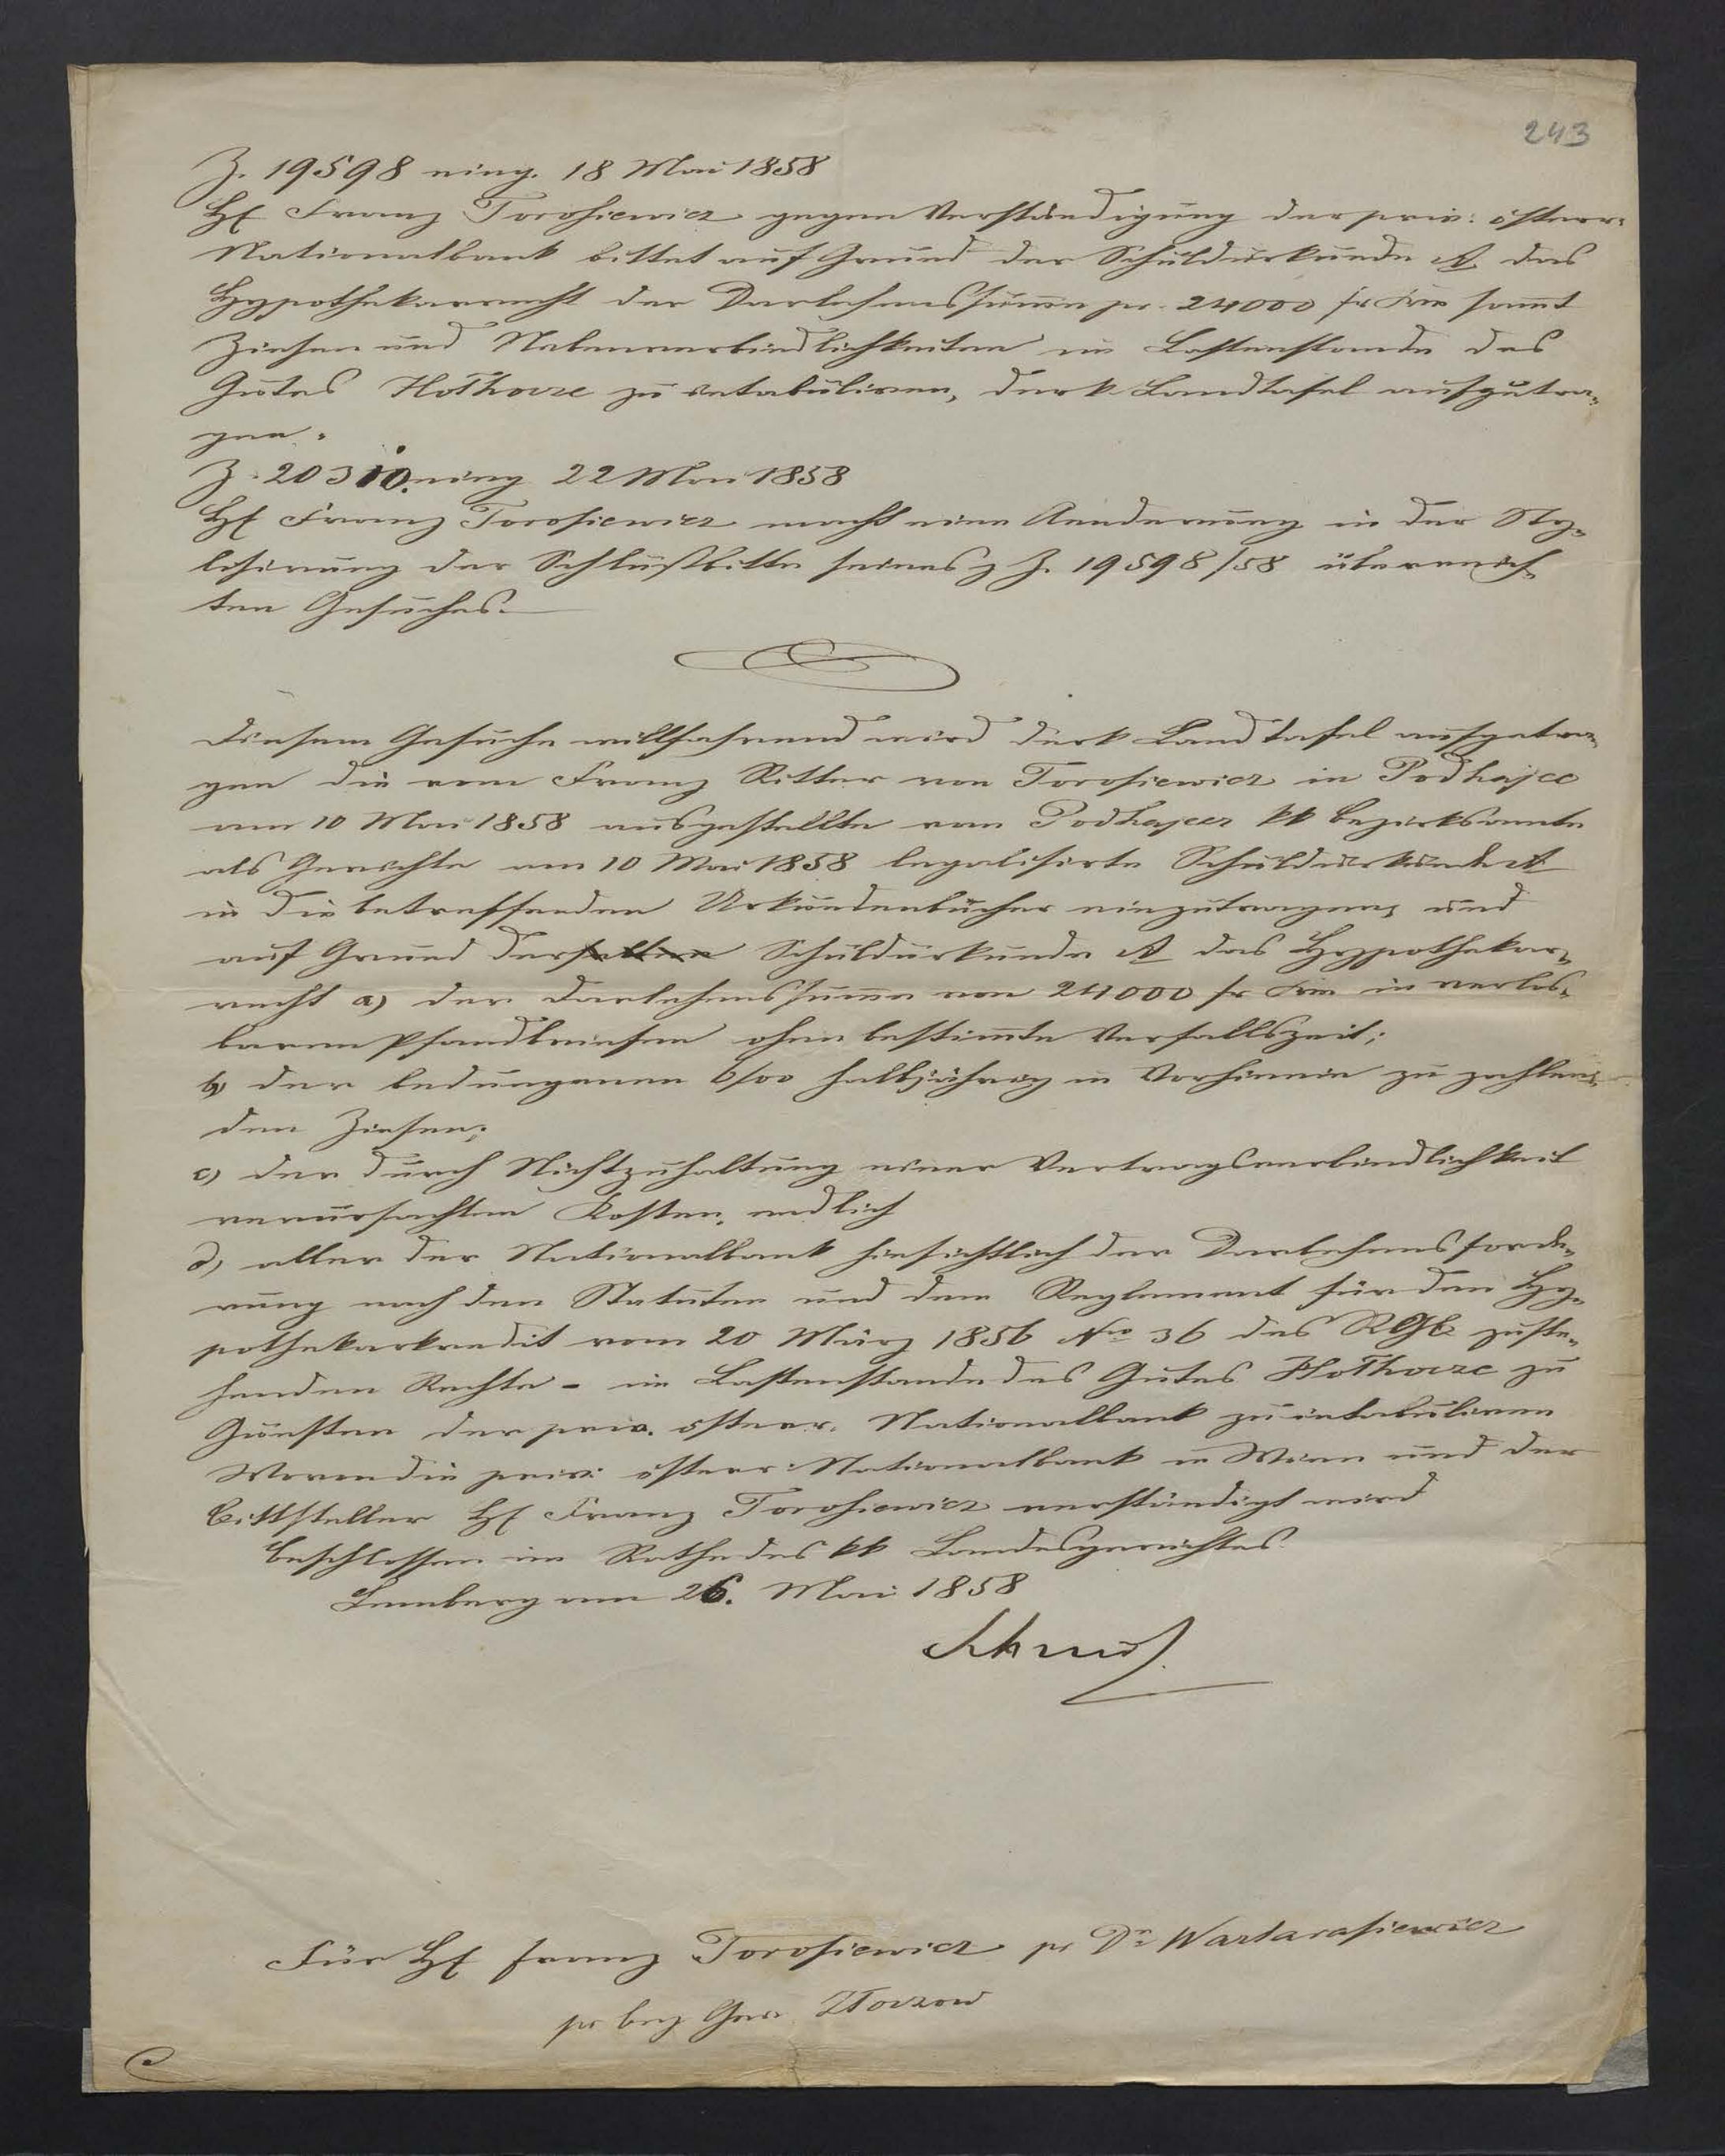 243
Z. 19598 eing. 18 Mai 1858
H. Franz Torosiewicz gegen Verständigung der priv: österr:
Nationalbank bittet auf Grund der Schuldurkunde A das
Hypothekarrecht der Darlehenssumme pr. 24000 fr sammt
Zinsen und Nebenverbindlichkeiten im Lastenstande des
Gutes Hołhocze zu intabuliren, der k. Landtafel aufzutra„
gen.
Z. 20310. eing 22 Mai 1858
H. Franz Torosiewicz macht eine Aenderung in der Sty„
lisirung der Schlußbitte seines z Z. 19598/58 überreich„
ten Gesuches.
Diesem Gesuche willfahrend wird der k Landtafel aufgetra„
gen die vom Franz Ritter von Torosiewicz in Podhajce
am 10 Mai 1858 ausgestellte vom Podhajcer kk Bezirksamte
als Gerichte am 10 Mai 1858 legalisirte Schuldurkunde A
in die betreffenden Urkundenbücher einzutragen, und
auf Grund derselben Schuldurkunde A das Hypothekar„
recht a) der Darlehenssumme von 24000 fr in verlos„
baren Pfandbriefen ohne bestimmte Verfallszeit;
b) der bedungenen 6/00 halbjährig in Vorhinein zu zahlen„
den Zinsen;
c) der durch Nichtzuhaltung einer Vertragsverbindlichkeit
verursachten Kosten, endlich
d) aller der Nationalbank hinsichtlich der Darlehensforde„
rung nach den Statuten und dem Reglement für den Hy„
pothekarkredit vom 20 März 1856 No 36 des RGB zuste„
henden Rechte - im Lastenstande des Gutes Hołhocze zu
Gunsten der priv. österr. Nationalbank zu intabuliren
Wovon die priv: österr: Nationalbank in Wien und der
Bittsteller H. Franz Torosiewicz verständigt wird
Beschlossen im Rathe des kk Landesgerichtes
Lemberg am 26. Mai 1858
Für H. Franz Torosiewicz pr Dr. Wartarasiewicz
pr Bez Ger. Złoczow